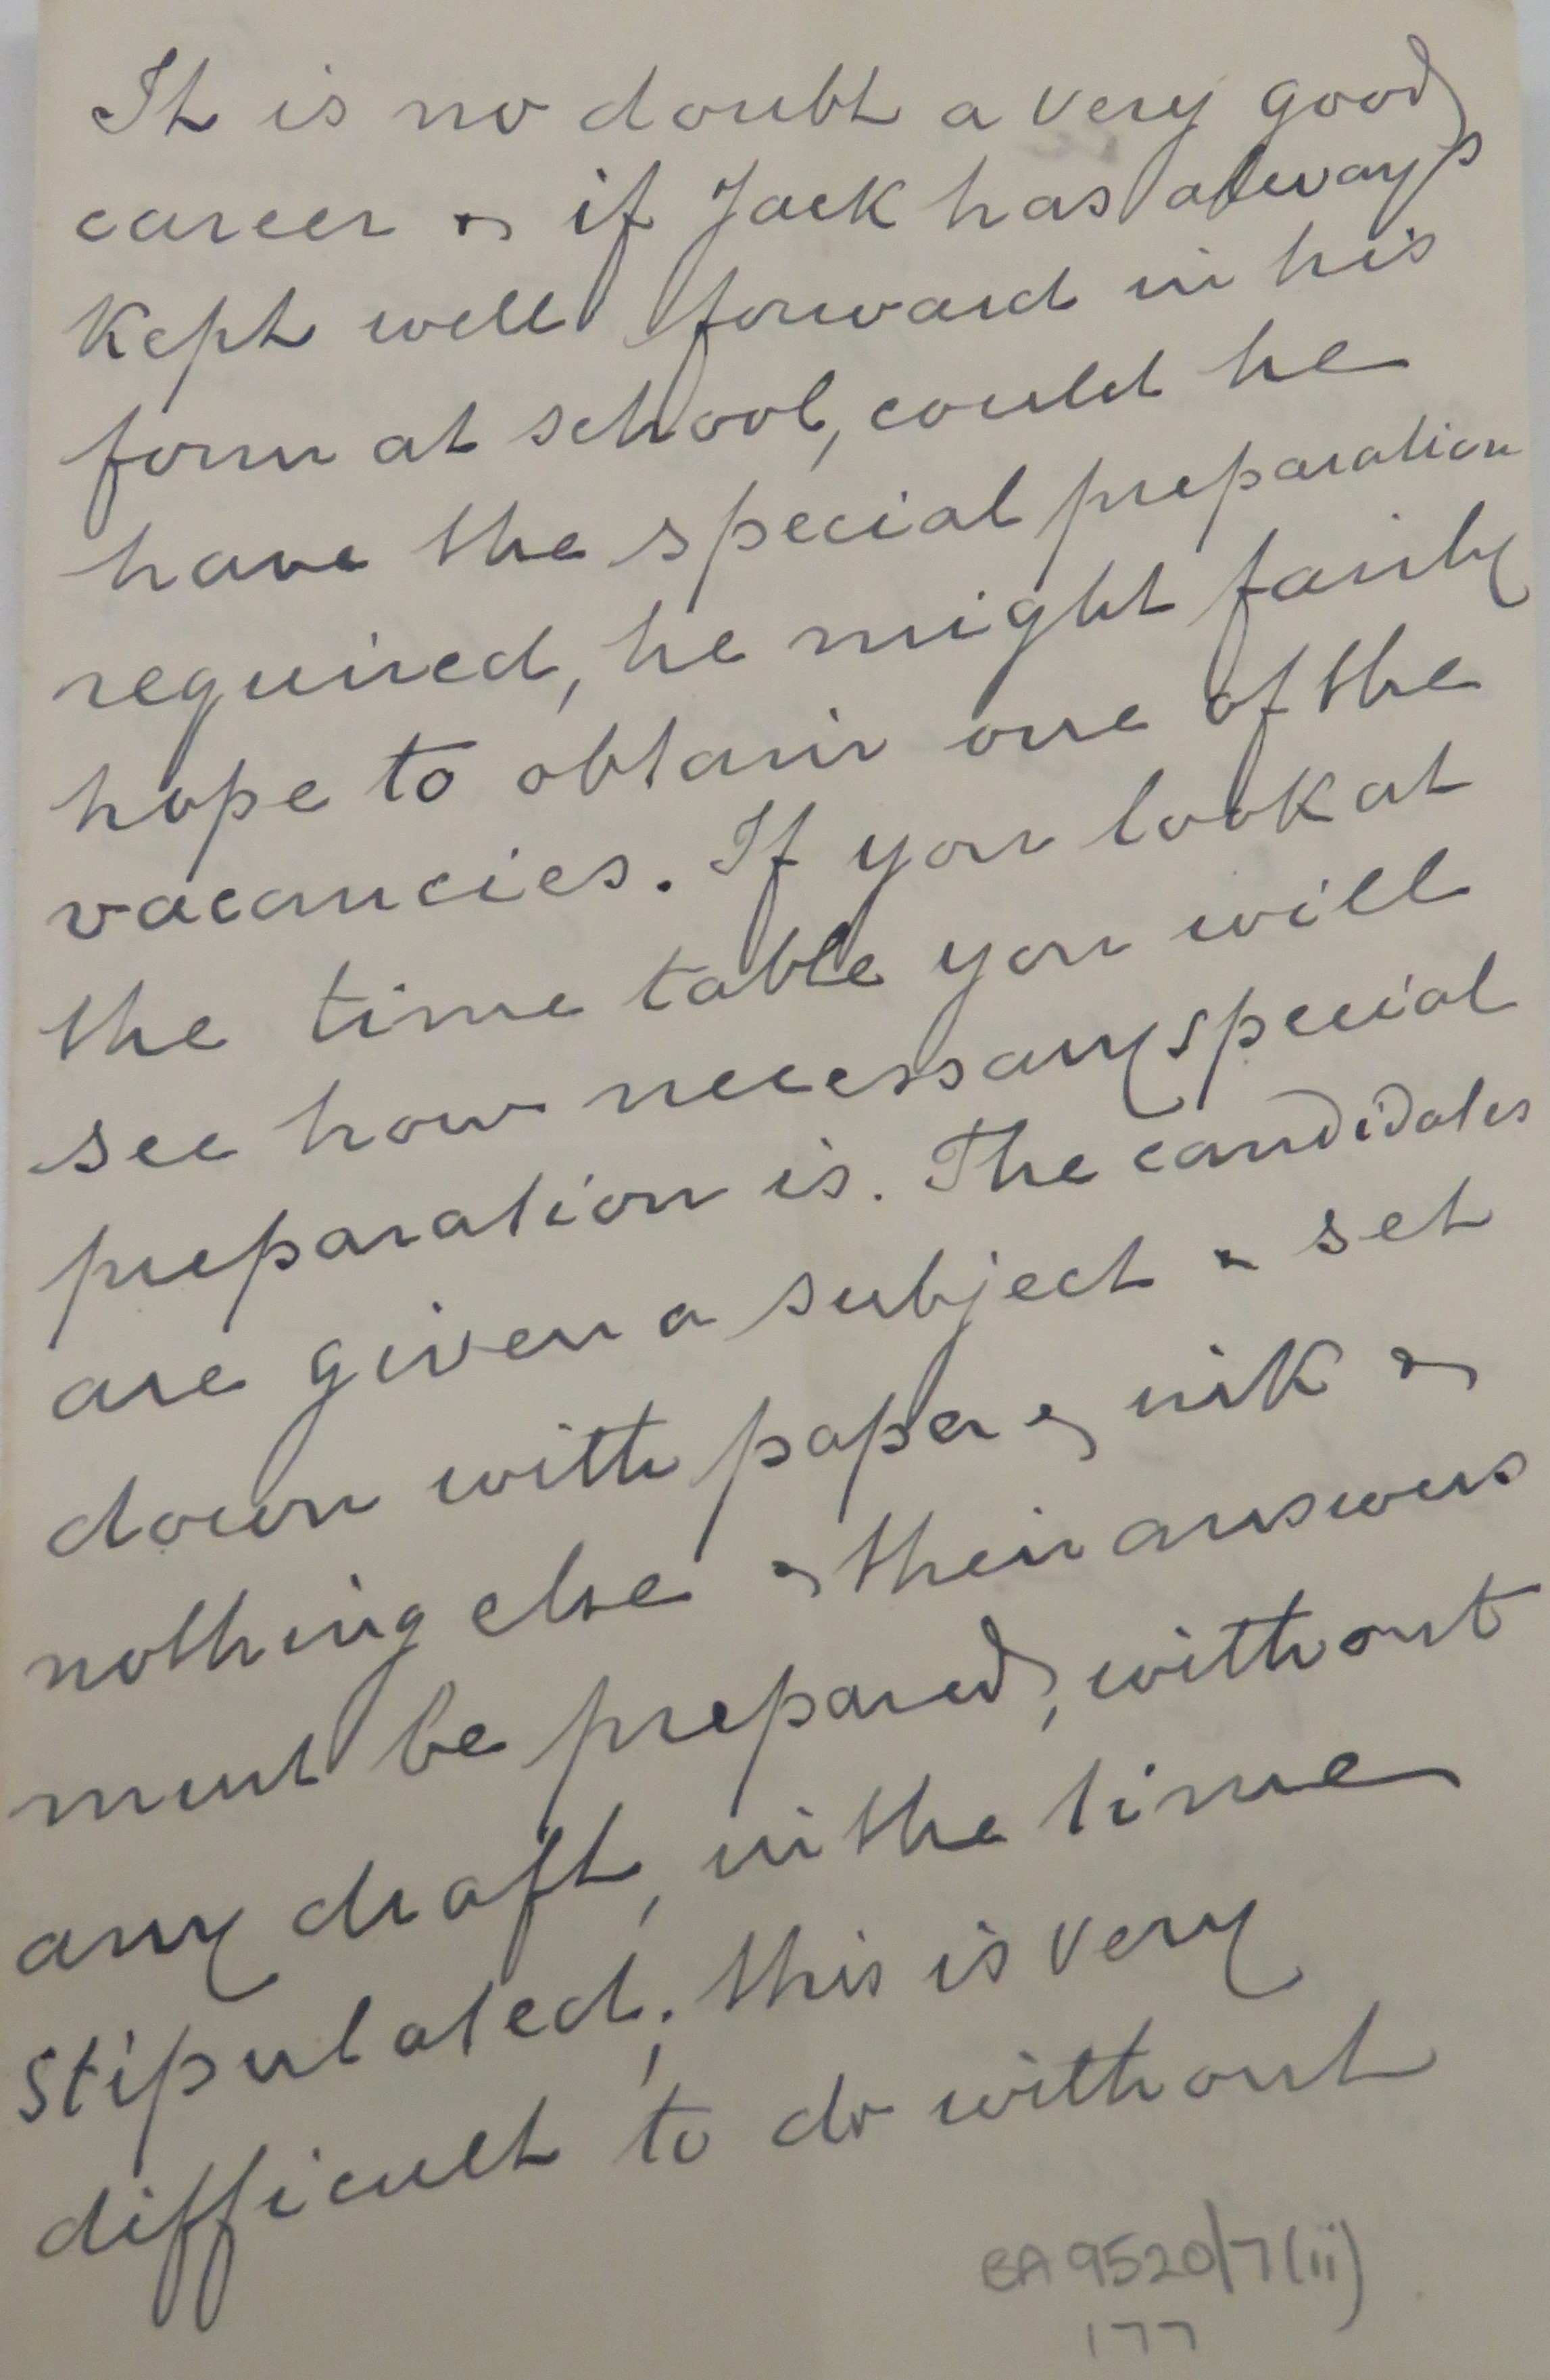 It is no doubt a very good
career & if Jack has always
kept well forward in his
form at school, could he
have the special preparation
required, he might fairly
hope to obtain one of the
vacancies. If you look at
the time table you will
see how necessary special
preparation is. The candidates
are given a subject & set
down with paper & ink &
nothing else & their answers
must be prepared, without
any draft, in the time
stipulated; this is very
difficult to do without
BA 9520/7(ii)
177